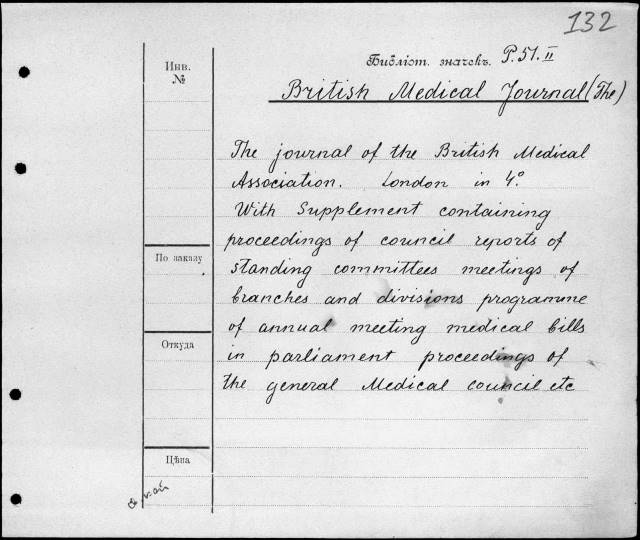 132
Инв.
№
Библіот. значекъ. P.51.II
British Medical Journal (The)
The journal of the British Medical
Association. London in 4°
With Supplement containing
proceedings of council reports of
standing committees meetings of
branches and divisions programme
of annual meeting medical bills
in parliament proceedings of
the general Medical council etc
По заказу
Откуда
Цѣна